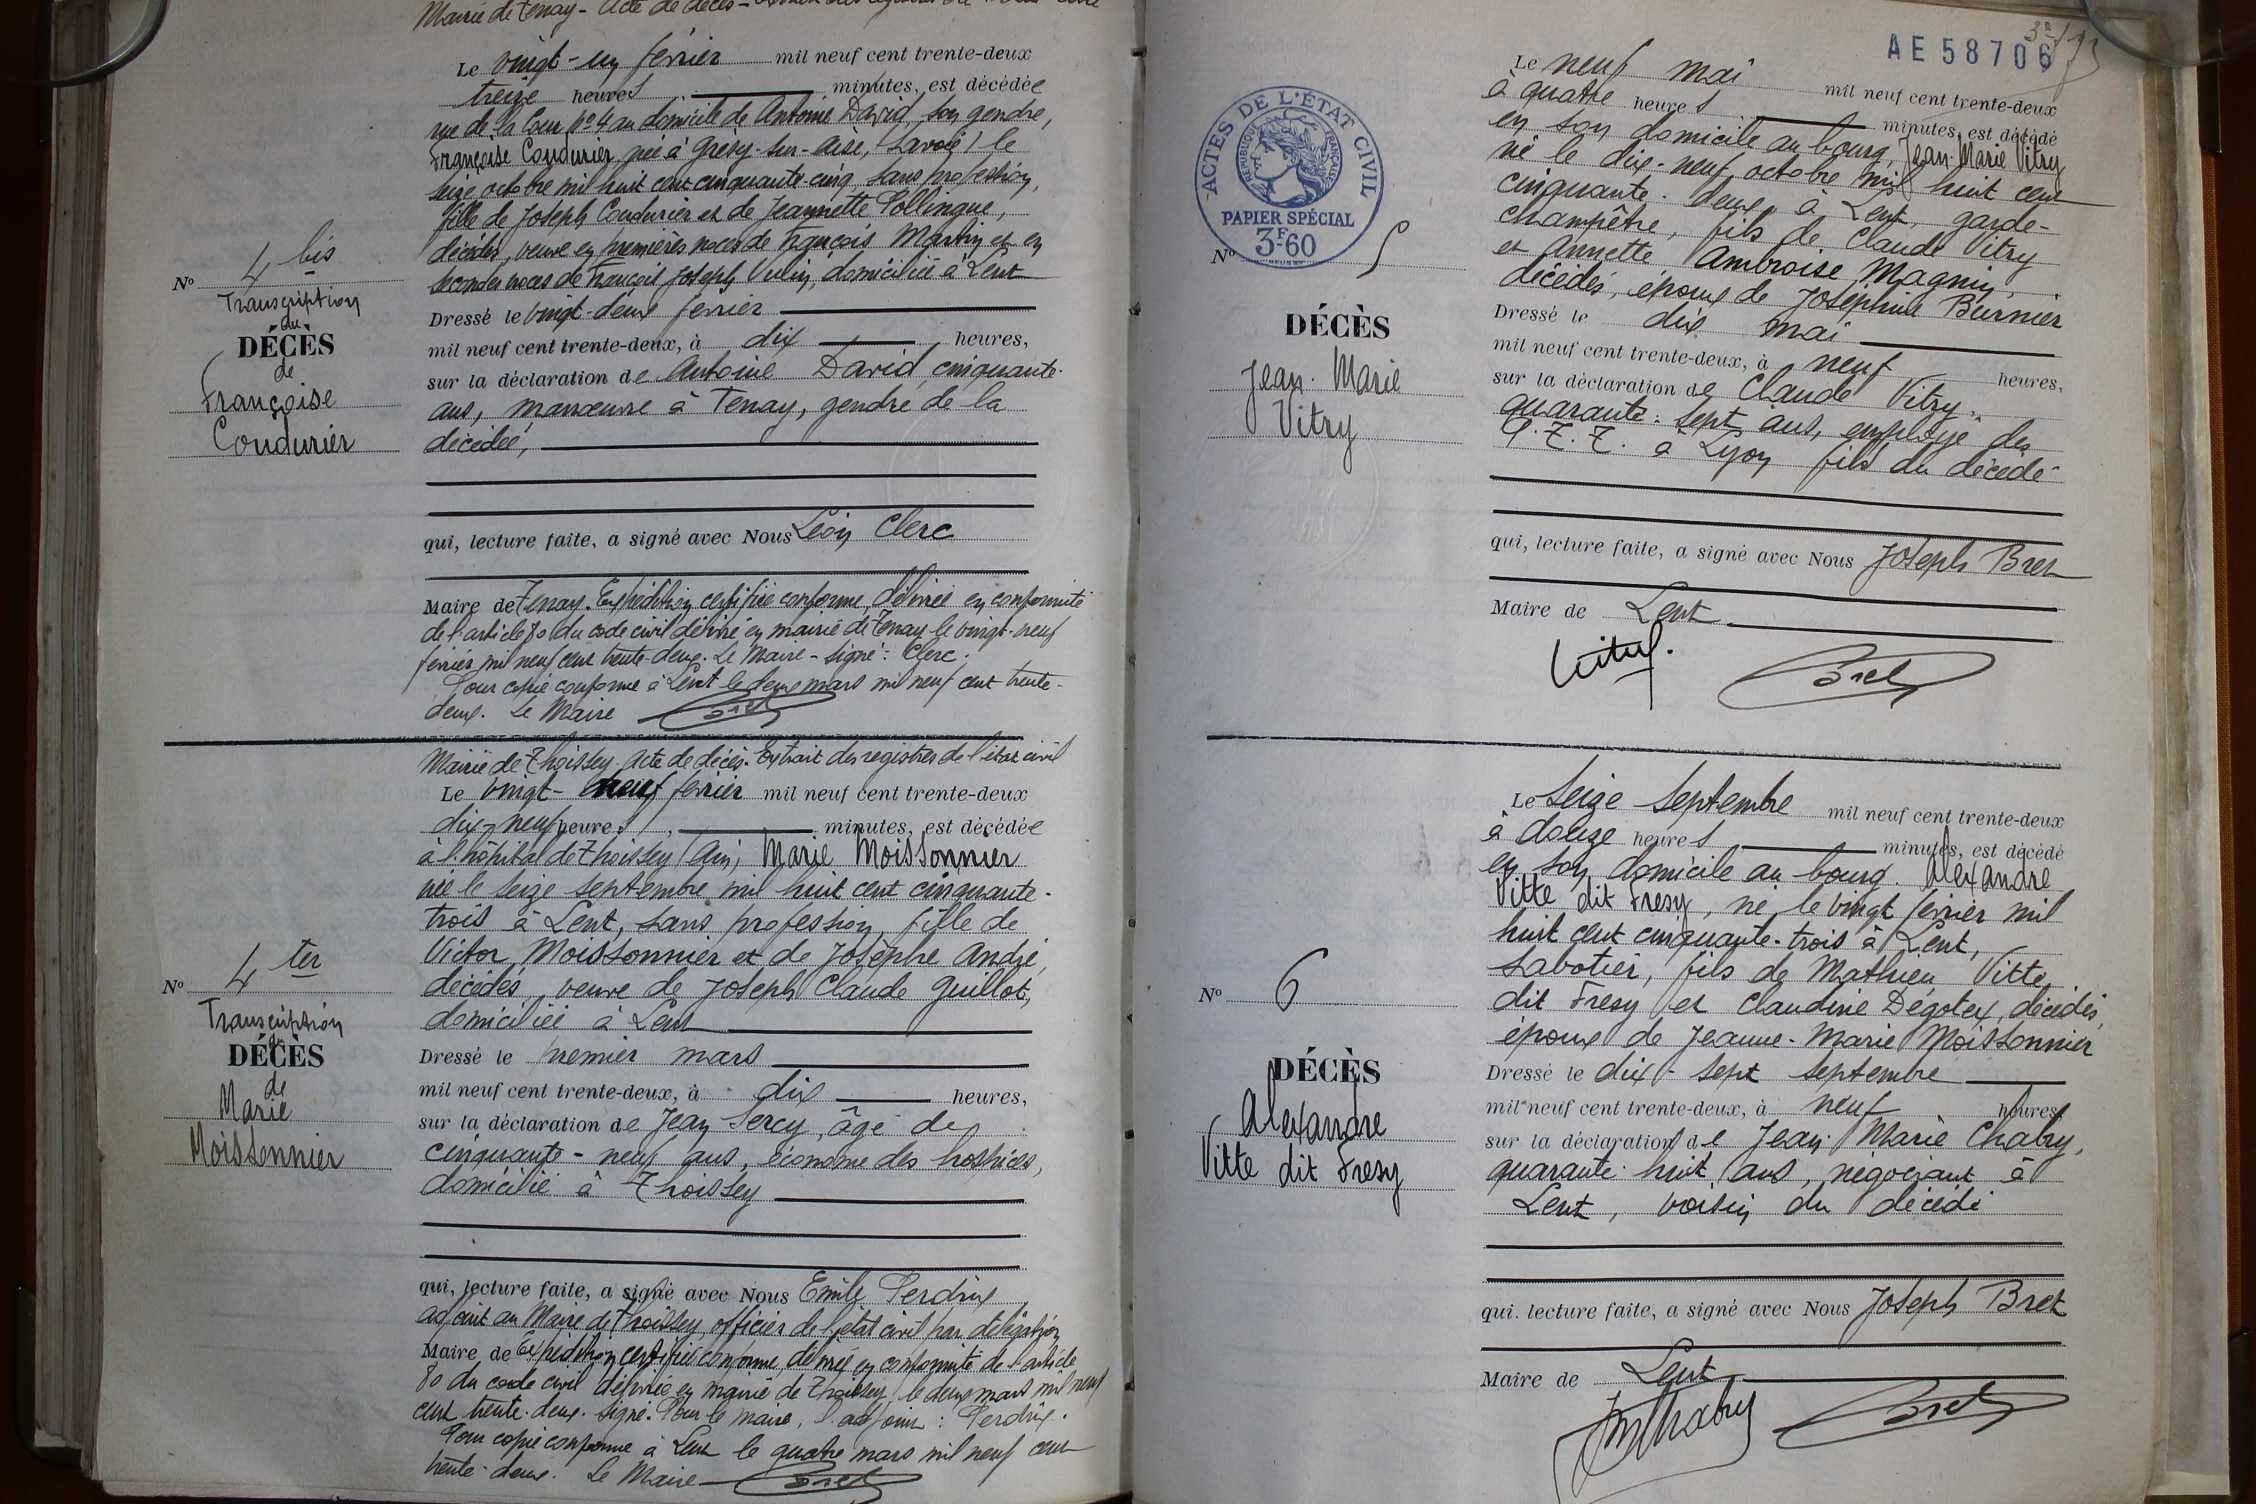 Mairie de Tenay - Acte de décès -
Le vingt-un février mil neuf cent trente-deux
treize heures, minutes, est décédée
rue de la Cour No 4 au domicile de Antoine David, son gendre,
Françoise Coudurier, née à Grésy-sur-Aise, (Savoie) le
seize octobre mil huit cent cinquante-cinq, sans profession,
fille de Joseph Coudurier et de Jeannette Pollingue,
décédés, veuve en premières noces de François Martin et en
secondes noces de François Joseph Vulin, domiciliée à Lent
Dressé le vingt-deux février
mil neuf cent trente-deux, à dix heures,
sur la déclaration de Antoine David, cinquante-
ans, manœuvre à Tenay, gendre de la
décédée,
qui, lecture faite, a signé avec Nous Léon Clerc
Maire de Tenay. Expédition certifiée conforme, délivrée en conformité
de l'article 80 du code civil délivré en mairie de Tenay le vingt-neuf
février mil neuf cent trente-deux. Le Maire - signé: Clerc.
Pour copie conforme à Lent le deux mars mil neuf cent trente-
deux. Le Maire Bret
No 4 bis
Transcription
du
DÉCÈS
de
Françoise
Coudurier
Mairie de Thoissey. Acte de décès. Extrait des registres de l'état civil
Le vingt-neuf février mil neuf cent trente-deux
dix-neuf heures, minutes, est décédée
à l'hôpital de Thoissey (Ain) Marie Moissonnier
née le seize septembre mil huit cent cinquante-
trois à Lent, sans profession, fille de
Victor Moissonnier et de Josèphe André,
décédés, veuve de Joseph Claude Guillot,
domiciliée à Lent
Dressé le premier mars
mil neuf cent trente-deux, à dix heures,
sur la déclaration de Jean Sercy, âgé de
cinquante-neuf ans, économe des hospices,
domicilié à Thoissey
qui, lecture faite, a signé avec Nous Emile Perdrix
adjoint au Maire de Thoissey, officier de l'état civil par délégation
Maire de Expédition certifiée conforme, délivrée en conformité de l'article
80 du code civil délivrée en mairie de Thoissey, le deux mars mil neuf
cent trente-deux. Signé: Pour le maire, l'adjoint: Perdrix.
Pour copie conforme à Lent le quatre mars mil neuf cent
trente-deux. Le Maire Bret
No 4 ter
Transcription
du
DÉCÈS
de
Marie
Moissonnier
AE 58706
ACTES DE L'ÉTAT CIVIL
RÉPUBLIQUE FRANÇAISE
PAPIER SPÉCIAL
3F-60
No 5
DÉCÈS
Jean-Marie
Vitry
Le neuf mai mil neuf cent trente-deux
à quatre heures minutes, est décédé
en son domicile au bourg, Jean-Marie Vitry
né le dix-neuf octobre mil huit cent
cinquante-deux à Lent, garde-
champêtre, fils de Claude Vitry
et Annette Ambroise Magnin,
décédés, époux de Joséphine Burnier
Dressé le dix mai
mil neuf cent trente-deux, à neuf heures,
sur la déclaration de Claude Vitry,
quarante-sept ans, employé des
P.T.T. à Lyon fils du décédé
qui, lecture faite, a signé avec Nous Joseph Bret
Maire de Lent
Vitry. Bret
No 6
DÉCÈS
Alexandre
Vitte dit Fresy
Le seize septembre mil neuf cent trente-deux
à douze heures minutes, est décédé
en son domicile au bourg. Alexandre
Vitte dit Fresy, né le vingt février mil
huit cent cinquante-trois à Lent,
sabotier, fils de Mathieu Vitte
dit Fresy et Claudine Dégotex, décédés,
époux de Jeanne-Marie Moissonnier
Dressé le dix-sept septembre
mil neuf cent trente-deux, à neuf heures
sur la déclaration de Jean-Marie Chabry,
quarante-huit ans, négociant à
Lent, voisin du décédé
qui, lecture faite, a signé avec Nous Joseph Bret
Maire de Lent
JMChabry Bret